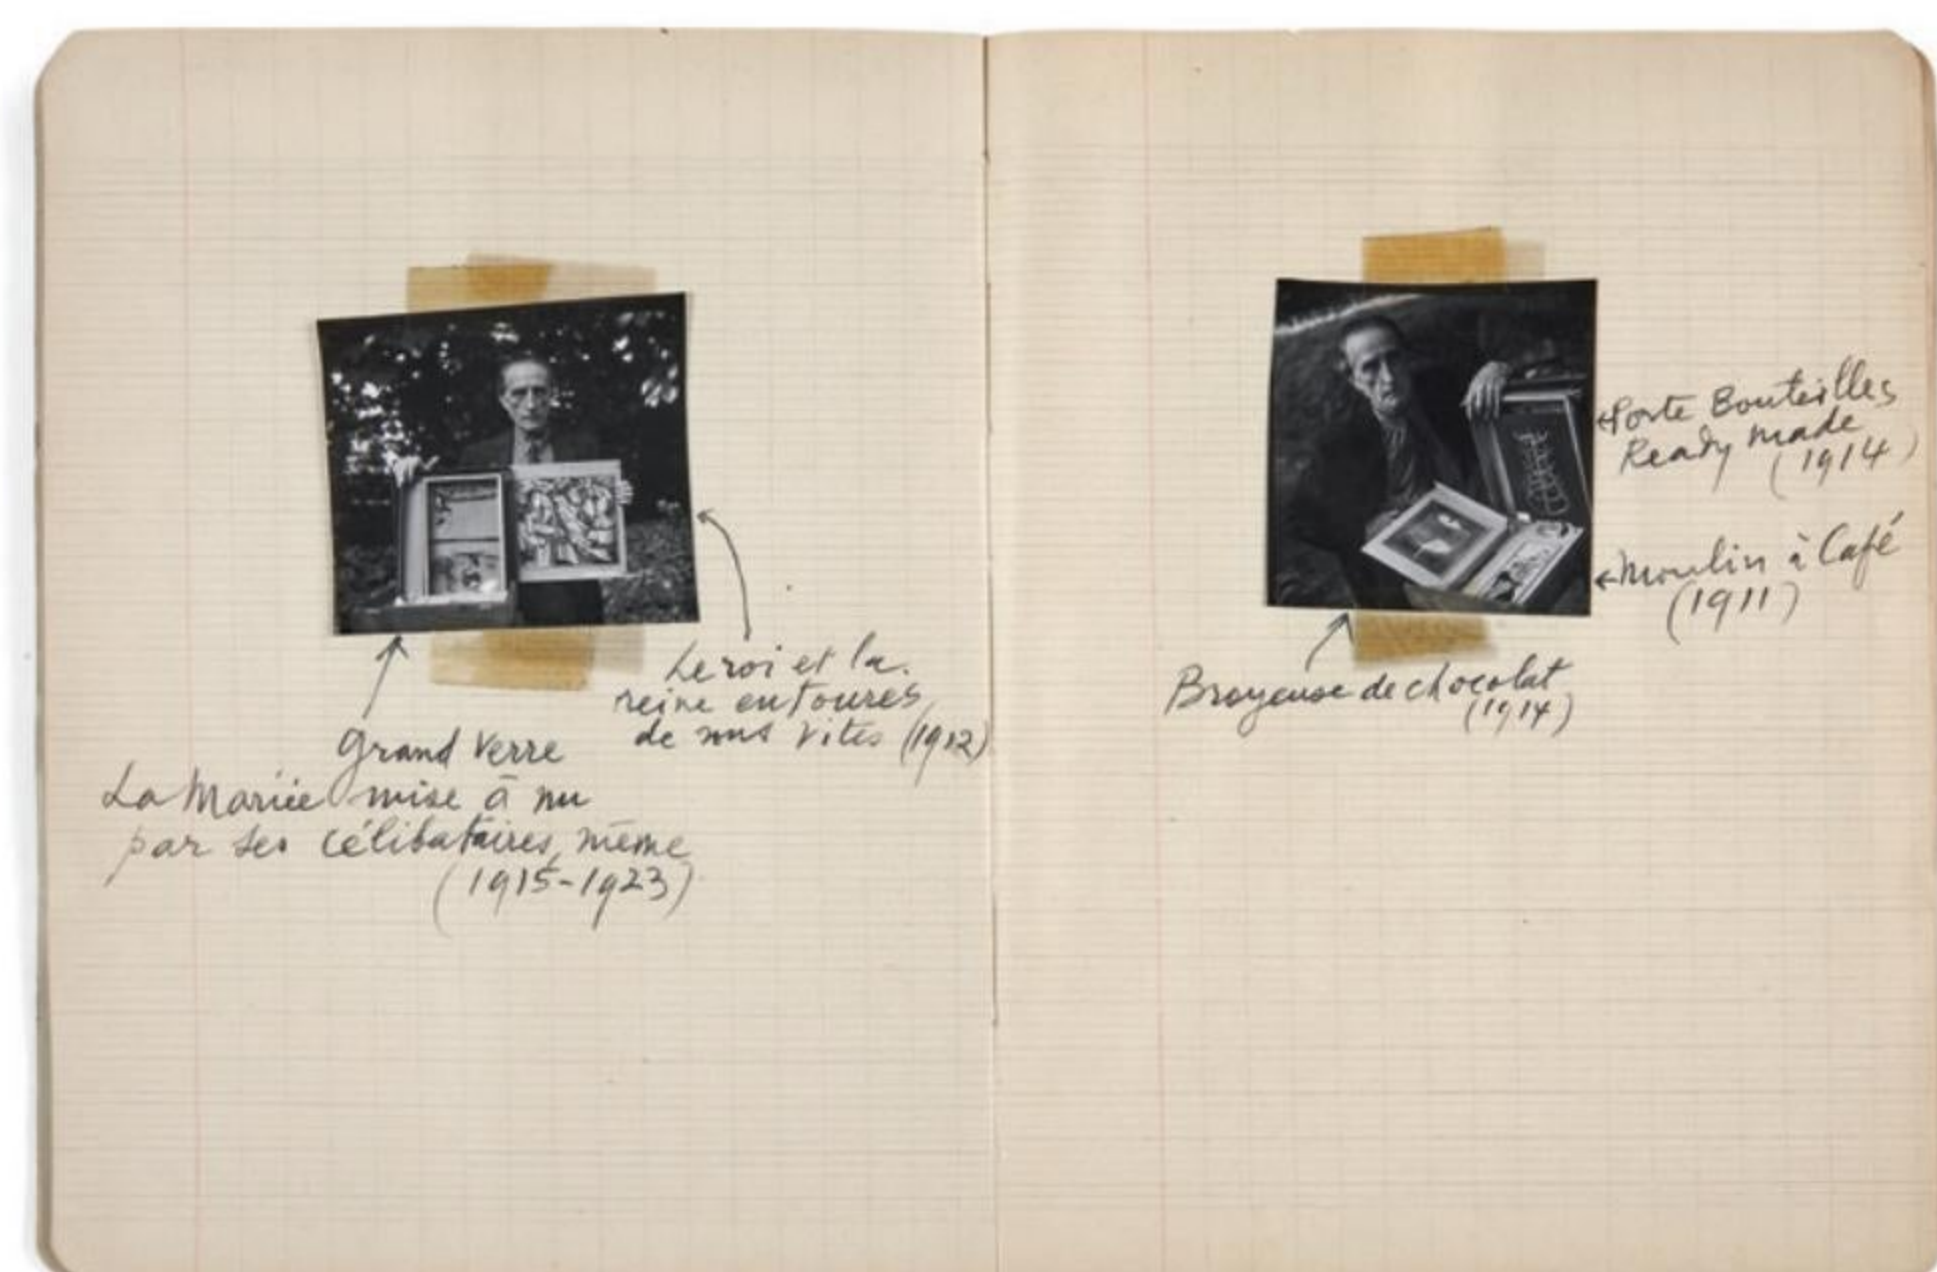 Le roi et la
reine entoures
de nus vites (1912)
Grand Verre
La Mariée mise à nu
par ses célibataires, même
(1915-1923)
Porte Bouteilles
Ready made
(1914)
Moulin à Café
(1911)
Broyeuse de chocolat
(1914)